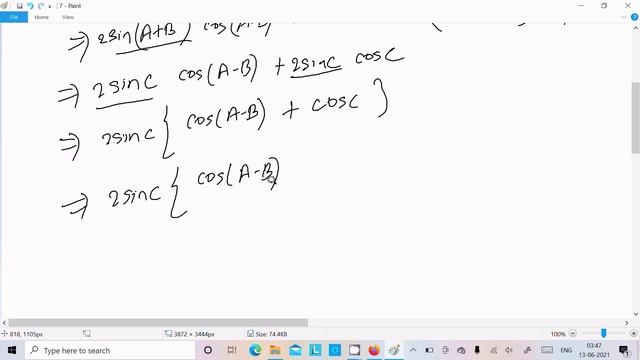 7 - Paint
File Home View
⇒ 2sin(A+B) cos(A-B)
⇒ 2sinC cos(A-B) + 2sinC cosC
⇒ 2sinC { cos(A-B) + cosC }
⇒ 2sinC { cos(A-B)
818, 1105px 3872 × 3444px Size: 74.4KB 100%
Type here to search ENG 03:47
13-06-2021